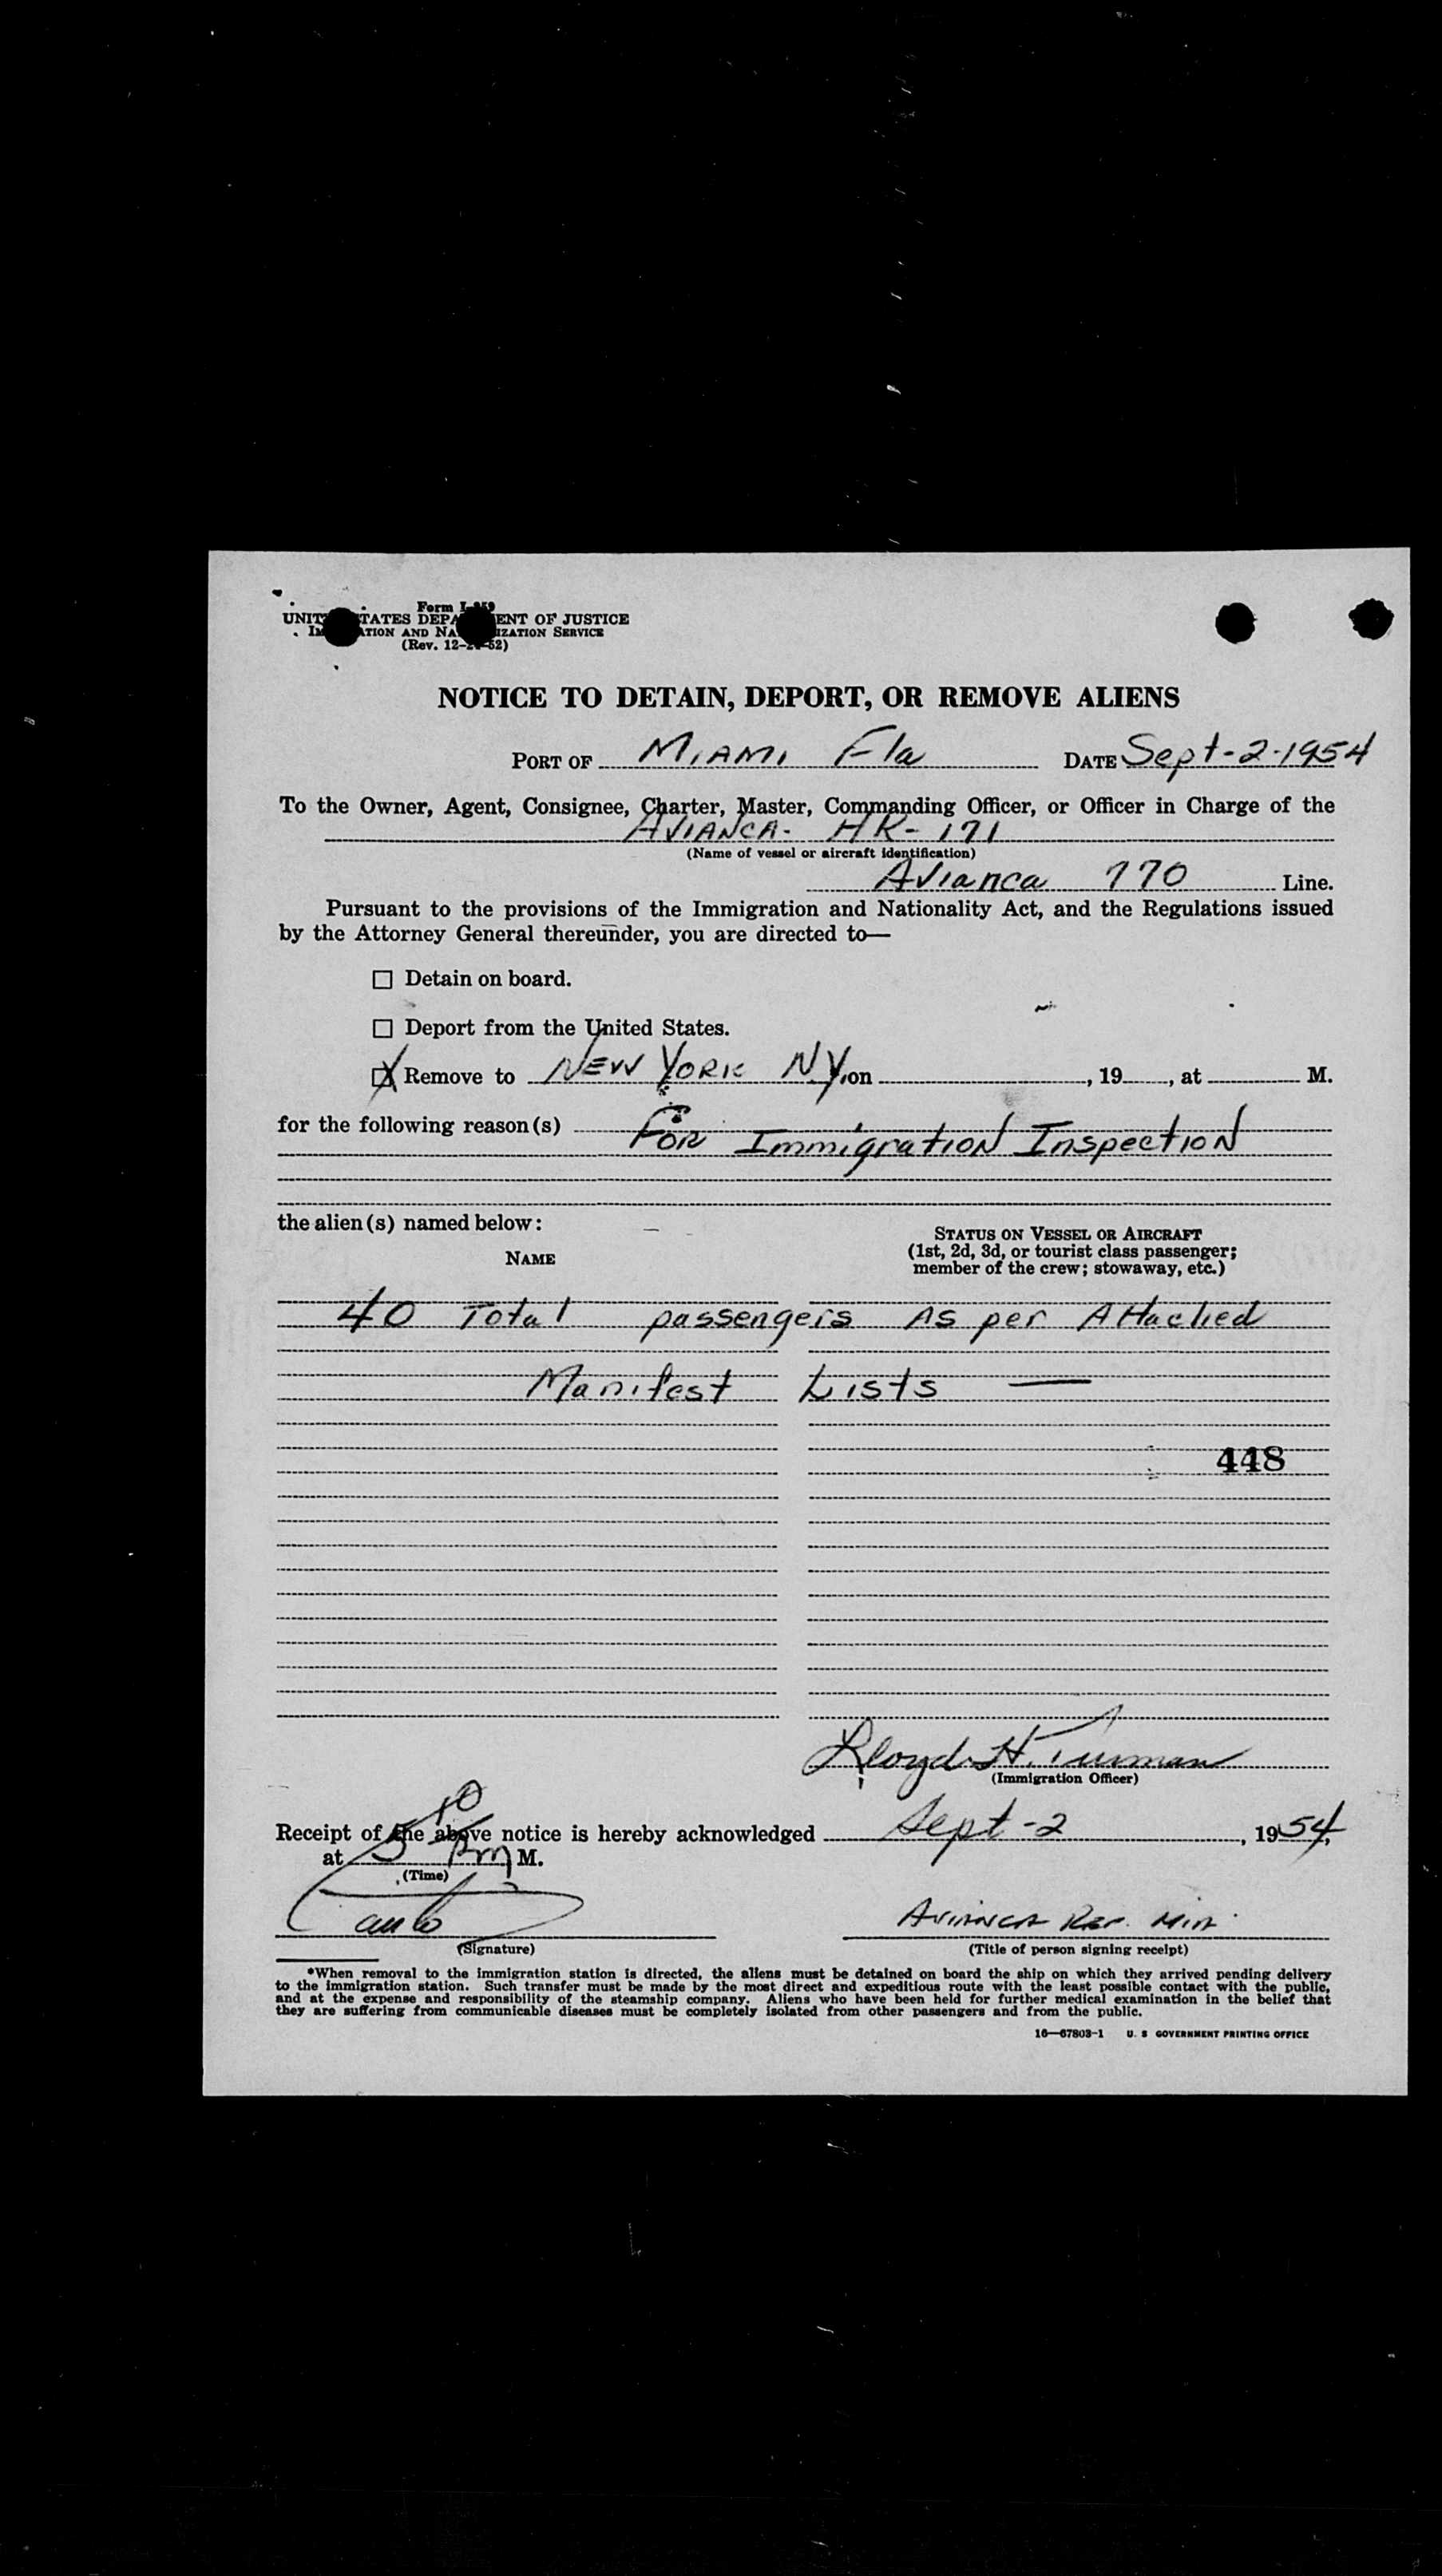 Form I-259
UNITED STATES DEPARTMENT OF JUSTICE
IMMIGRATION AND NATURALIZATION SERVICE
(Rev. 12-24-52)
NOTICE TO DETAIN, DEPORT, OR REMOVE ALIENS
PORT OF MIAMI Fla DATE Sept-2-1954
To the Owner, Agent, Consignee, Charter, Master, Commanding Officer, or Officer in Charge of the
AVIANCA- HK- 171
(Name of vessel or aircraft identification)
Avianca 770 Line.
Pursuant to the provisions of the Immigration and Nationality Act, and the Regulations issued
by the Attorney General thereunder, you are directed to—
☐ Detain on board.
☐ Deport from the United States.
☒ Remove to NEW YORK NY, on , 19 , at M.
for the following reason(s)
FOR Immigration Inspection
the alien(s) named below:
NAME
STATUS ON VESSEL OR AIRCRAFT
(1st, 2d, 3d, or tourist class passenger;
member of the crew; stowaway, etc.)
40 Total passengers As per Attached
Manifest Lists —
448
Lloyd H. Turman
(Immigration Officer)
Receipt of the above notice is hereby acknowledged Sept-2, 1954,
at 5 10 Pm M.
(Time)
Avianca Rep. Mia.
(Signature) (Title of person signing receipt)
*When removal to the immigration station is directed, the aliens must be detained on board the ship on which they arrived pending delivery
to the immigration station. Such transfer must be made by the most direct and expeditious route with the least possible contact with the public,
and at the expense and responsibility of the steamship company. Aliens who have been held for further medical examination in the belief that
they are suffering from communicable diseases must be completely isolated from other passengers and from the public.
16—67803-1 U. S GOVERNMENT PRINTING OFFICE